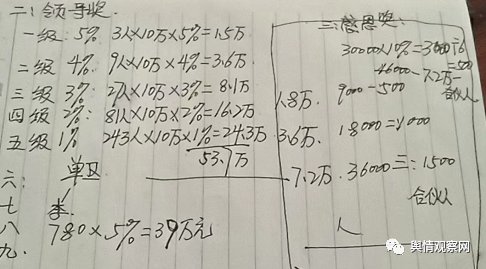 二:领导奖.
一级:5% 3人×10万×5%=1.5万
二级 4%: 9人×10万×4%=3.6万
三级 3%: 27人×10万×3%=8.1万
四级 2%: 81人×10万×2%=16.2万
五级 1% 243人×10万×1%=24.3万
53.7万
六: 单
七
八 780×5%=39万元
九.
三:感恩奖:
30000×10%=3000元
=500
46000-7.2万-
合伙人
1.8万. 9000-500
3.6万. 18000=1000
7.2万. 36000三:1500
合伙人
人
舆情观察网